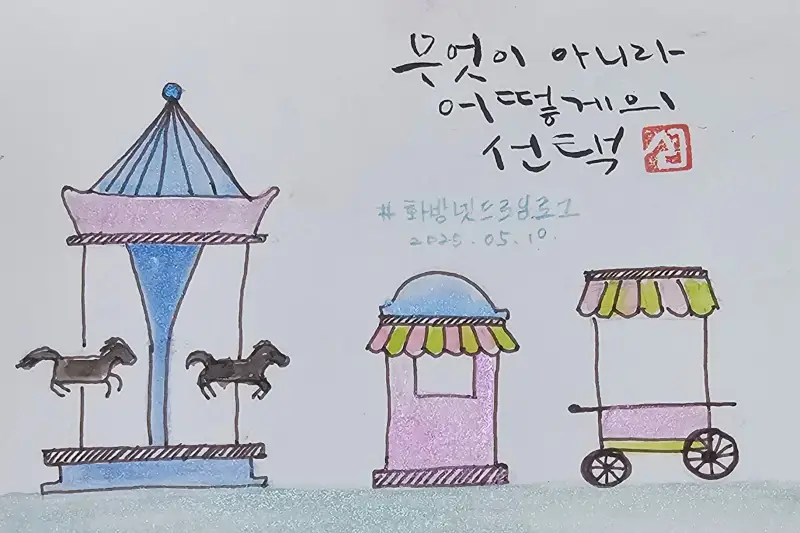 무엇이 아니라
어떻게의
선택
#화방넷드로잉로그
2025.05.10.